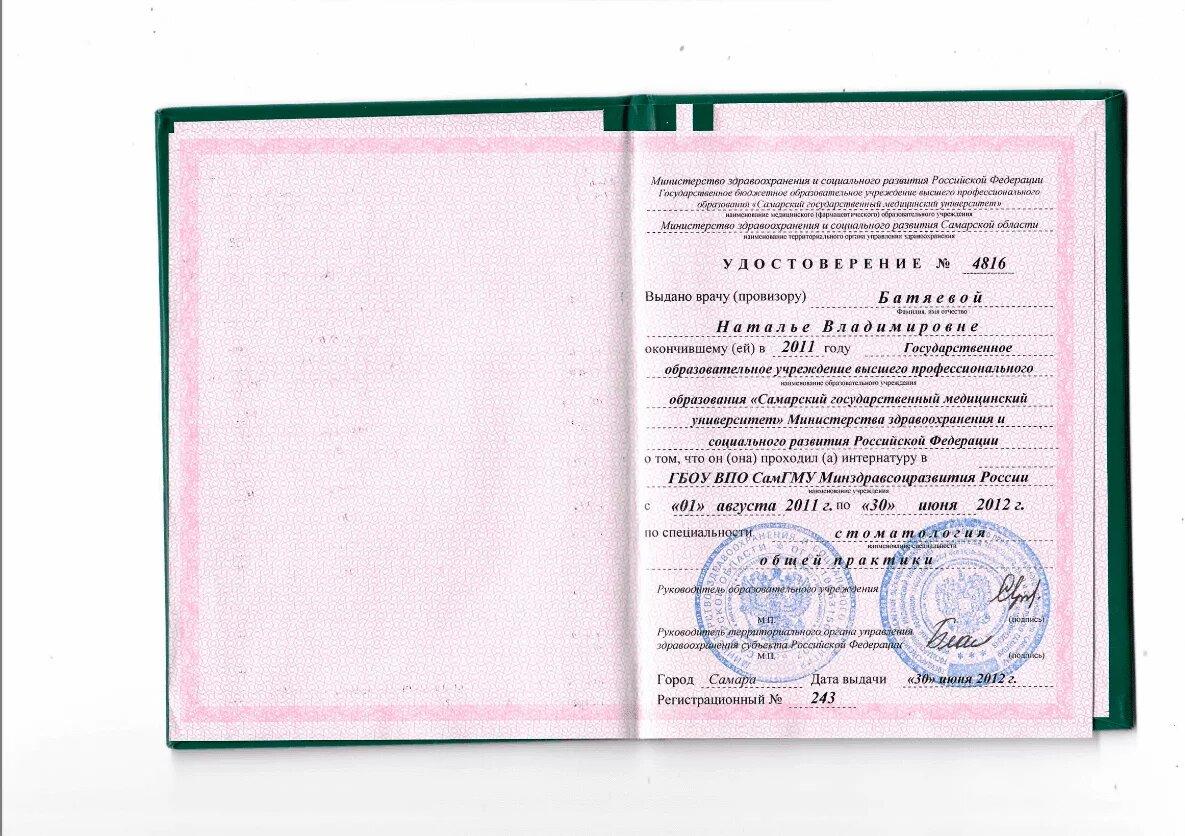 Министерство здравоохранения и социального развития Российской Федерации
Государственное бюджетное образовательное учреждение высшего профессионального
образования «Самарский государственный медицинский университет»
наименование медицинского (фармацевтического) образовательного учреждения
Министерство здравоохранения и социального развития Самарской области
наименование территориального органа управления здравоохранения
УДОСТОВЕРЕНИЕ № 4816
Выдано врачу (провизору) Батяевой
Фамилия, имя отчество
Наталье Владимировне
окончившему (ей) в 2011 году Государственное
образовательное учреждение высшего профессионального
наименование образовательного учреждения
образования «Самарский государственный медицинский
университет» Министерства здравоохранения и
социального развития Российской Федерации
о том, что он (она) проходил (а) интернатуру в
ГБОУ ВПО СамГМУ Минздравсоцразвития России
наименование учреждения
с «01» августа 2011 г. по «30» июня 2012 г.
по специальности стоматология
наименование специальности
общей практики
Руководитель образовательного учреждения
М.П. (подпись)
Руководитель территориального органа управления
здравоохранения субъекта Российской Федерации
М.П. (подпись)
Город Самара Дата выдачи «30» июня 2012 г.
Регистрационный № 243